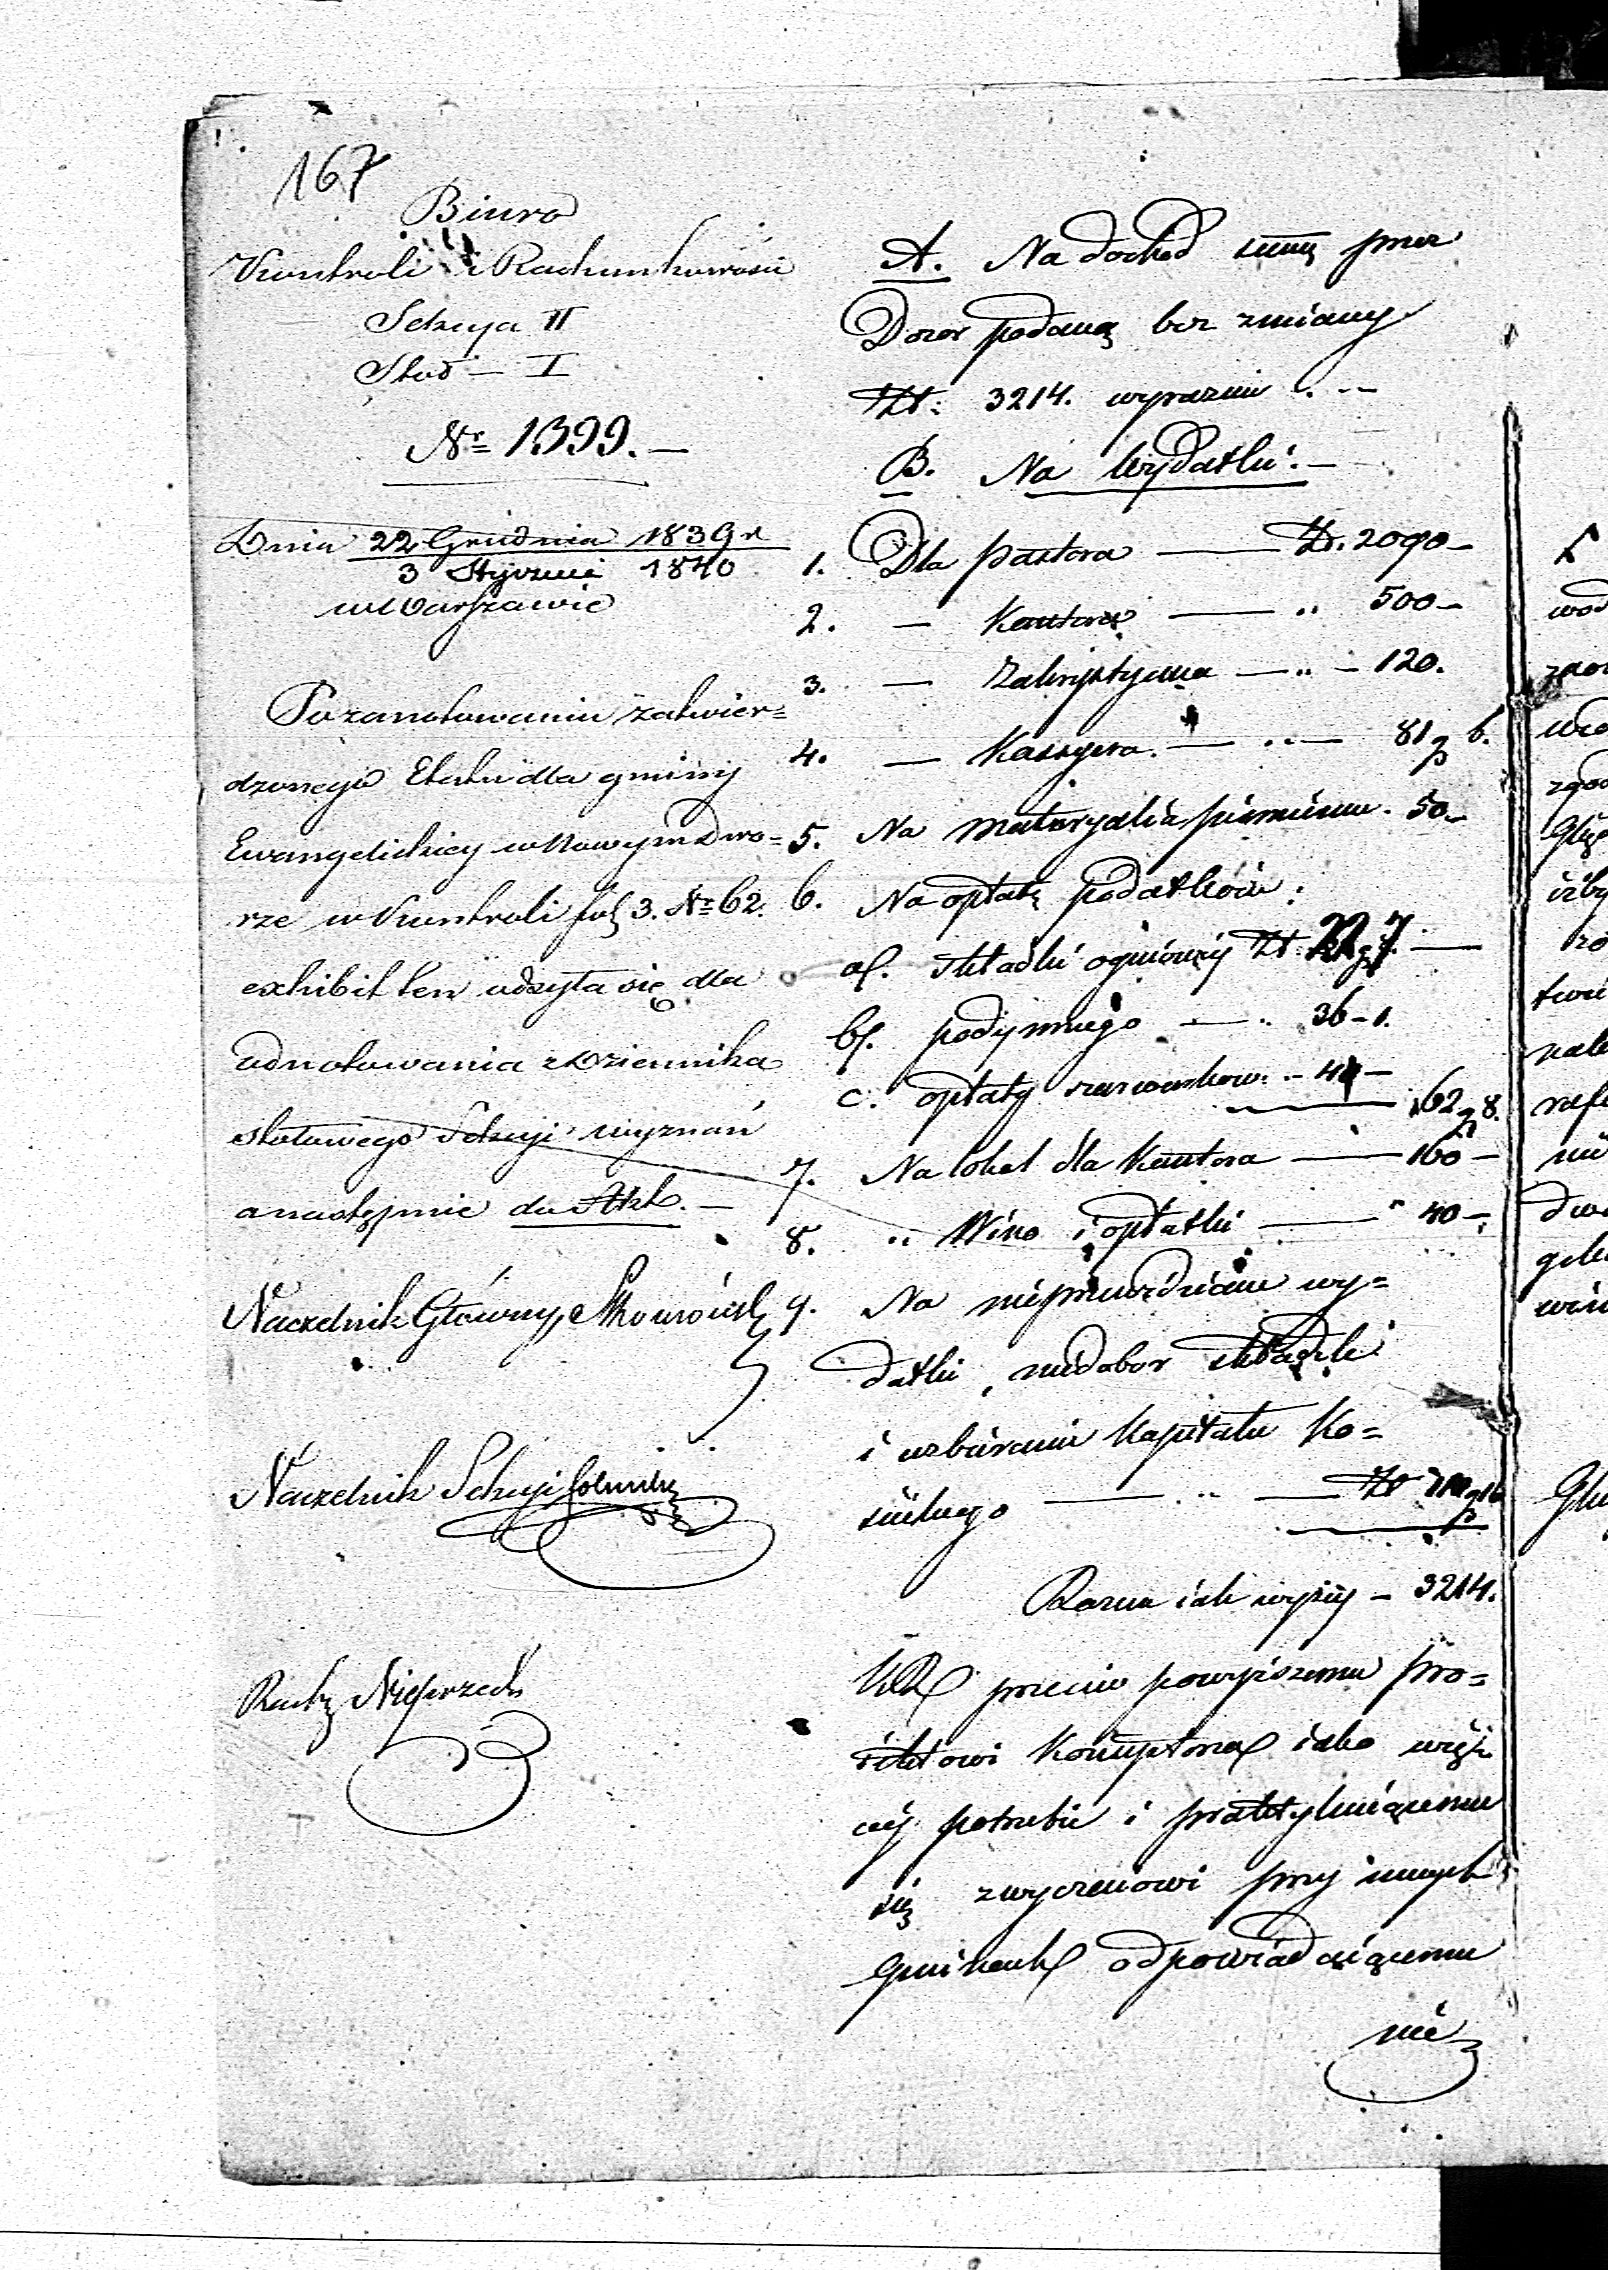 167
Biuro
Kontroli i Rachunkowości
Sekcya II
Stoł — I
Nr 1399. —
Dnia 22 Grudnia 1839 r
3 Stycznia 1840
w Warszawie
Po zanotowaniu zatwier=
dzonego Etatu dla gminy
Ewangelickiey w Nowym Dwo=
rze w Kontroli fol 3. Nr 62.
exhibit ten odsyła się dla
odnotowania z Dziennika
stołowego Sekcyi wyznań
a następnie do Akt. —
Naczelnik Główny
Naczelnik Sekcyi
A. Na dochód summę przez
Dozor podaną bez zmiany
Zł: 3214. wyraznie . —
B. Na Wydatki. —
1. Dla pastora — Zł. 2090 —
2. — Kantora — " 500 —
3. — Zakrystyana — " — 120.
4. — Kassyera — " — 81 g 6.
5. Na materyały piśmienne . 50 —
6. Na opłatę podatków:
a/. składki ogniowey Zł. 22 g 7. —
b/. podymnego — " 36 — 1.
c. opłaty szarwarkow. — 4 —
62 g 8.
7. Na lokal dla Kantora — 160 —
8. " Wino i opłatki — " 40 —
9. Na nieprzewidziane wy=
datki, niedobor składki
i uzbieranie Kapitału Ko=
ścielnego — " — Zł
Razem iak wyżey — 3214.
KR przeciw powyższemu pro=
iektowi iako
potrzebie i praktykuiącemu
się zwyczaiowi przy innych
gminach odpowiadaiącemu
nie